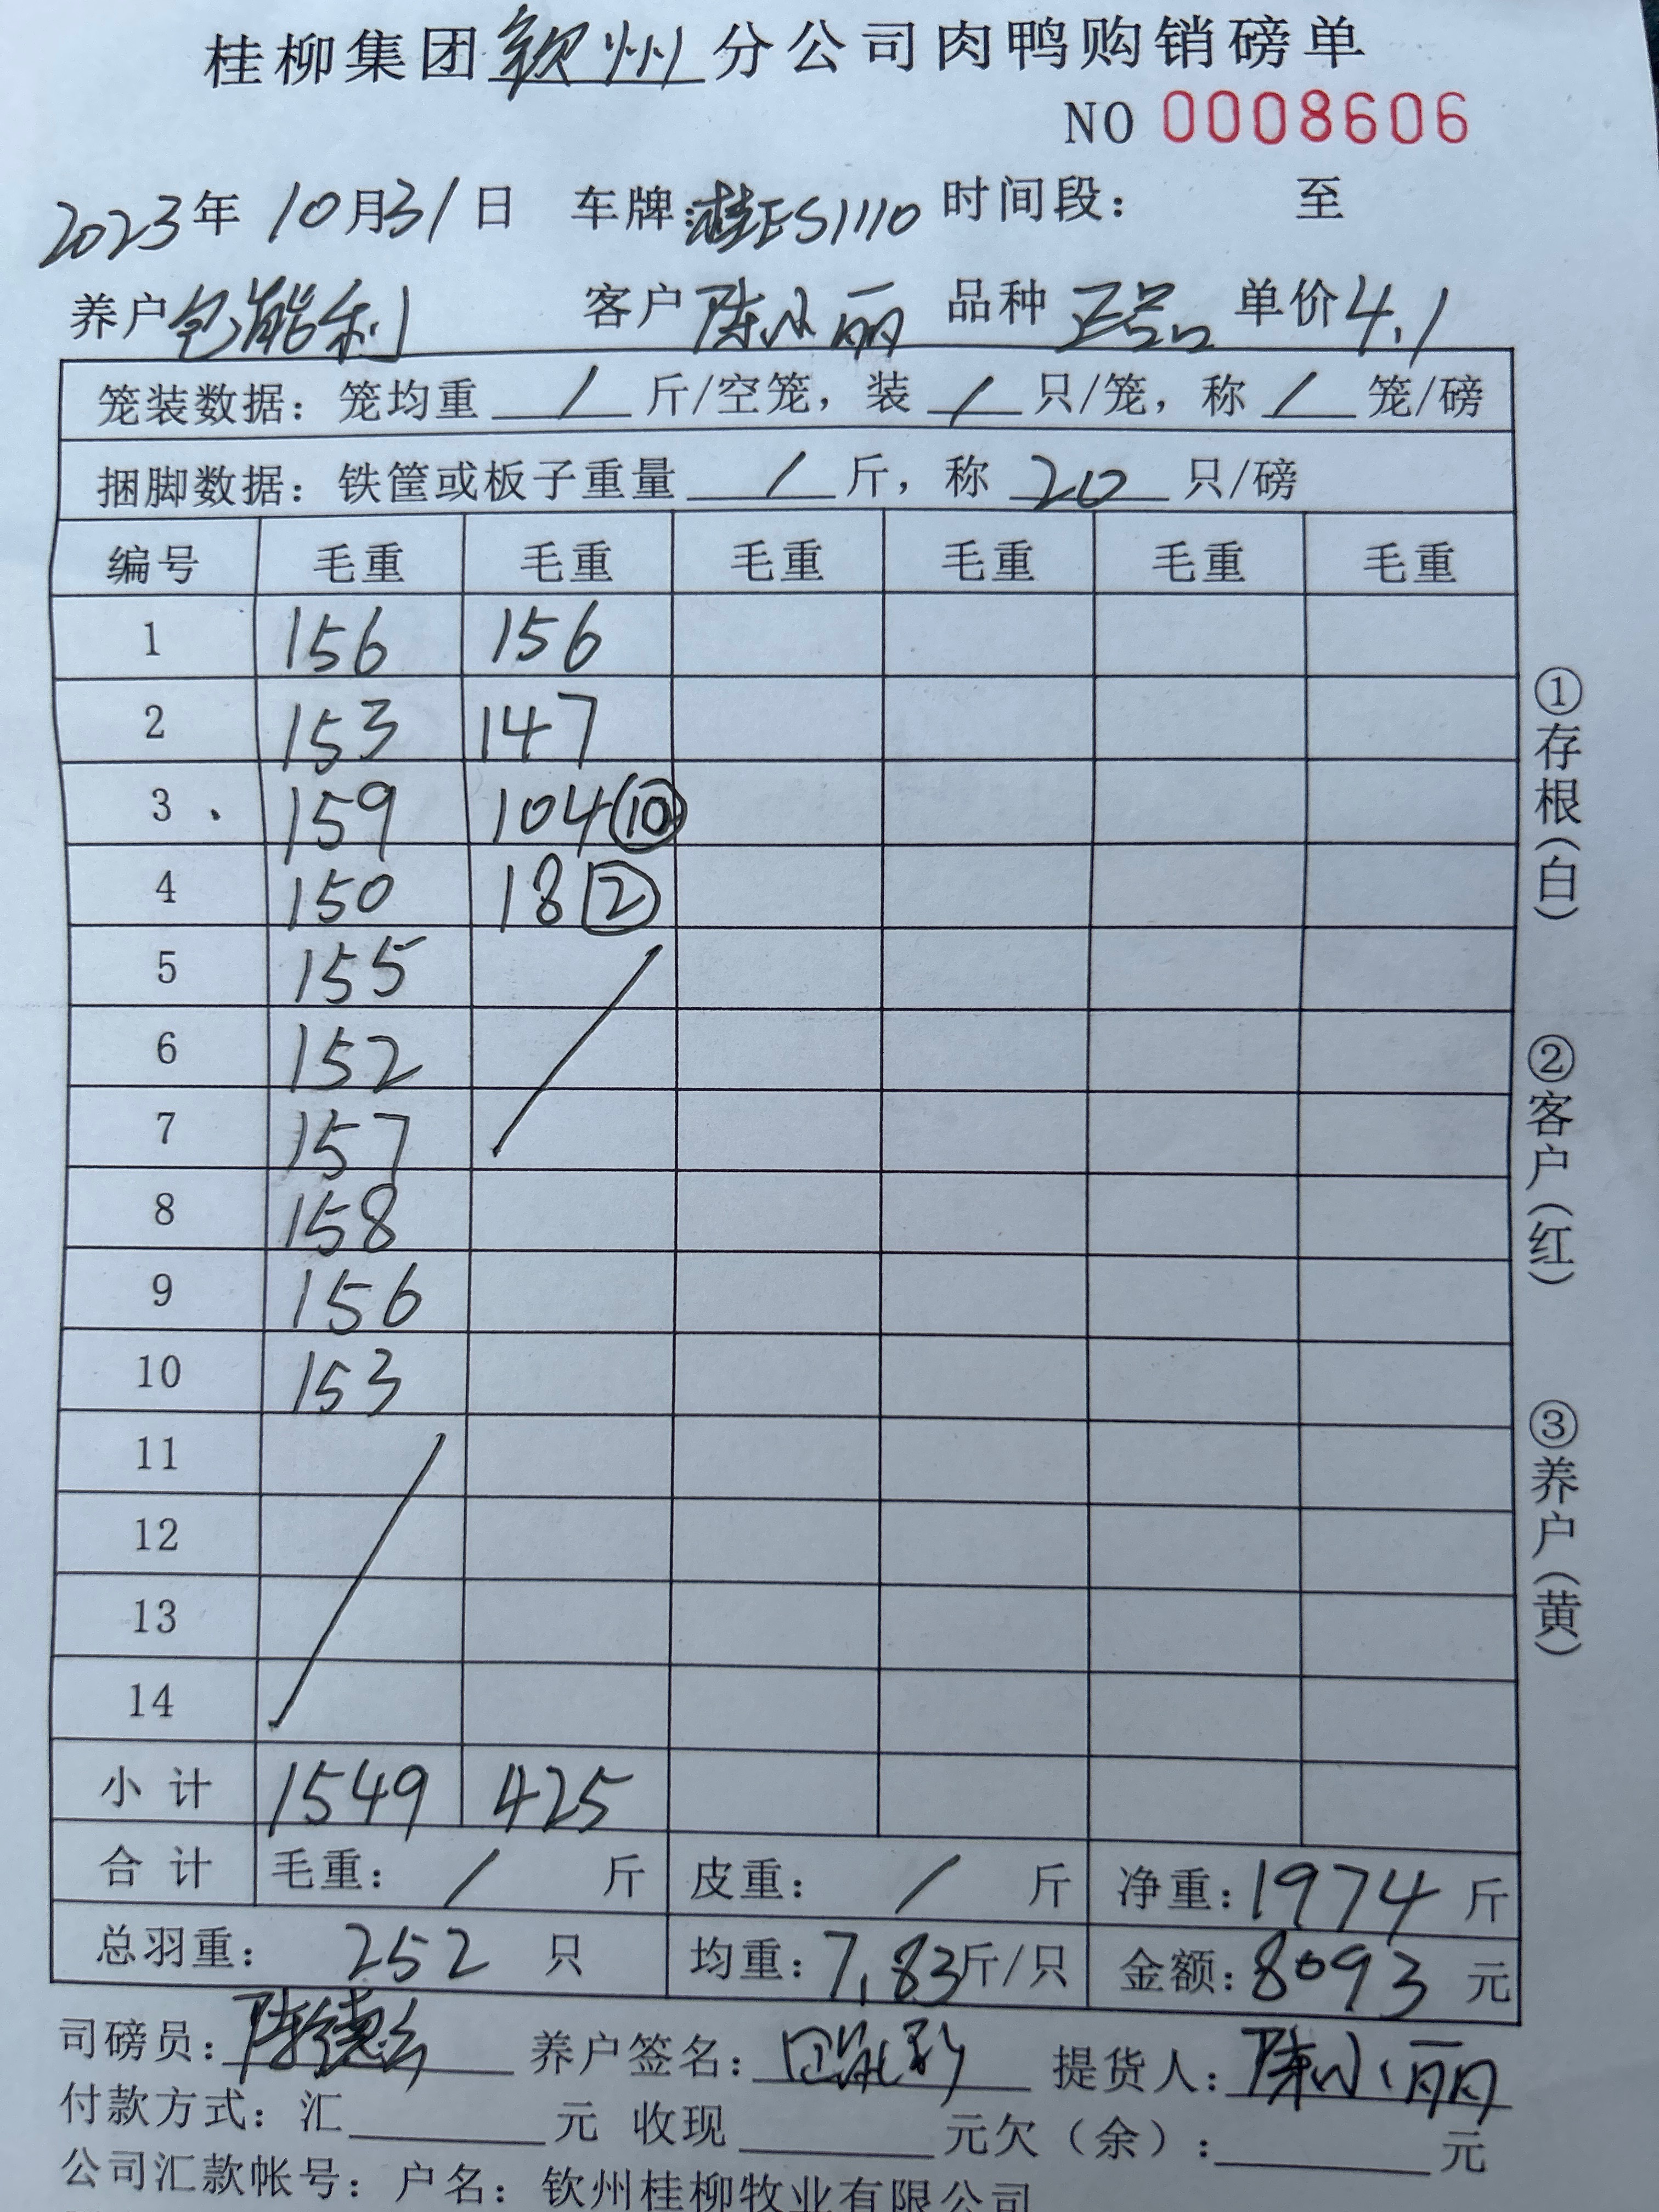 桂柳集团钦州分公司肉鸭购销磅单
NO 0008606
2023年 10月31日 车牌:桂ES1110 时间段: 至
养户包能利 客户陈小丽 品种正品 单价4.1
笼装数据: 笼均重 / 斤/空笼, 装 / 只/笼, 称 / 笼/磅
捆脚数据: 铁筐或板子重量 / 斤, 称 20 只/磅
编号 毛重 毛重 毛重 毛重 毛重 毛重
1 156 156
2 153 147
3 159 104 ⑩
4 150 18 ②
5 155
6 152
7 157
8 158
9 156
10 153
11
12
13
14
小计 1549 425
合计 毛重: / 斤 皮重: / 斤 净重: 1974 斤
总羽重: 252 只 均重: 7.83斤/只 金额: 8093 元
司磅员: 养户签名: 提货人: 陈小丽
付款方式: 汇 元 收现 元欠(余): 元
公司汇款帐号: 户名: 钦州桂柳牧业有限公司
①存根(白)
②客户(红)
③养户(黄)